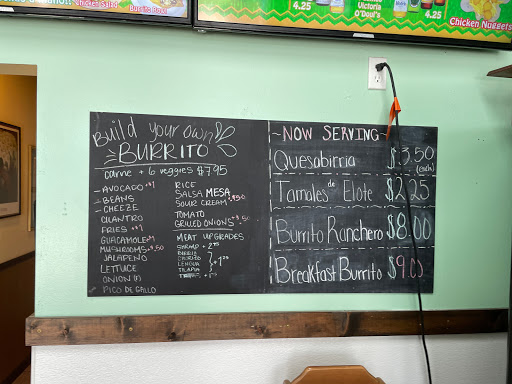 Chicken Salad
Burrito Bowl
4.25
Victoria
O'Doul's
4.25
Chicken Nuggets
Build your own
BURRITO
carne + 6 veggies $7.95
- AVOCADO +$1
- BEANS
- CHEEZE
CILANTRO
FRIES +$1
GUACAMOLE
MUSHROOMS +$.50
JALAPEÑO
LETTUCE
ONION
PICO DE GALLO
RICE
SALSA MESA
SOUR CREAM
TOMATO
GRILLED ONIONS +$.50
MEAT UPGRADES
SHRIMP
BIRRIA
CHORIZO
LENGUA
TILAPIA
~NOW SERVING~
Quesabirria $3.50
(each)
Tamales de Elote $2.25
Burrito Ranchero $8.00
Breakfast Burrito $9.00